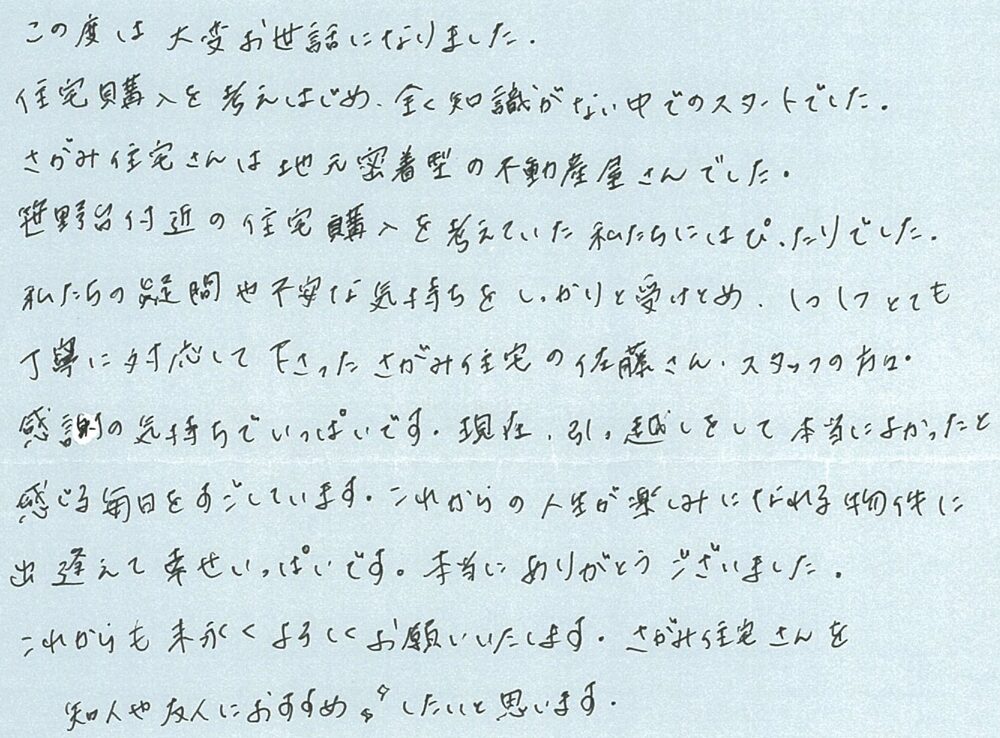 この度は大変お世話になりました.
住宅購入を考えはじめ、全く知識がない中でのスタートでした。
さがみ住宅さんは地元密着型の不動産屋さんでした。
笹野台付近の住宅購入を考えていた私たちにはぴったりでした.
私たちの疑問や不安な気持ちをしっかりと受けとめ、1つ1つとても
丁寧に対応して下さったさがみ住宅の佐藤さん・スタッフの方々・
感謝の気持ちでいっぱいです。現在、引っ越しをして本当によかったと
感じる毎日をすごしています。これからの人生が楽しみになれる物件に
出逢えて幸せいっぱいです。本当にありがとうございました.
これからも末永くよろしくお願いいたします。さがみ住宅さんを
知人や友人におすすめしたいと思います.